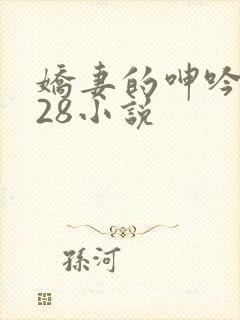 嬌妻的呻吟
28小說
孫河